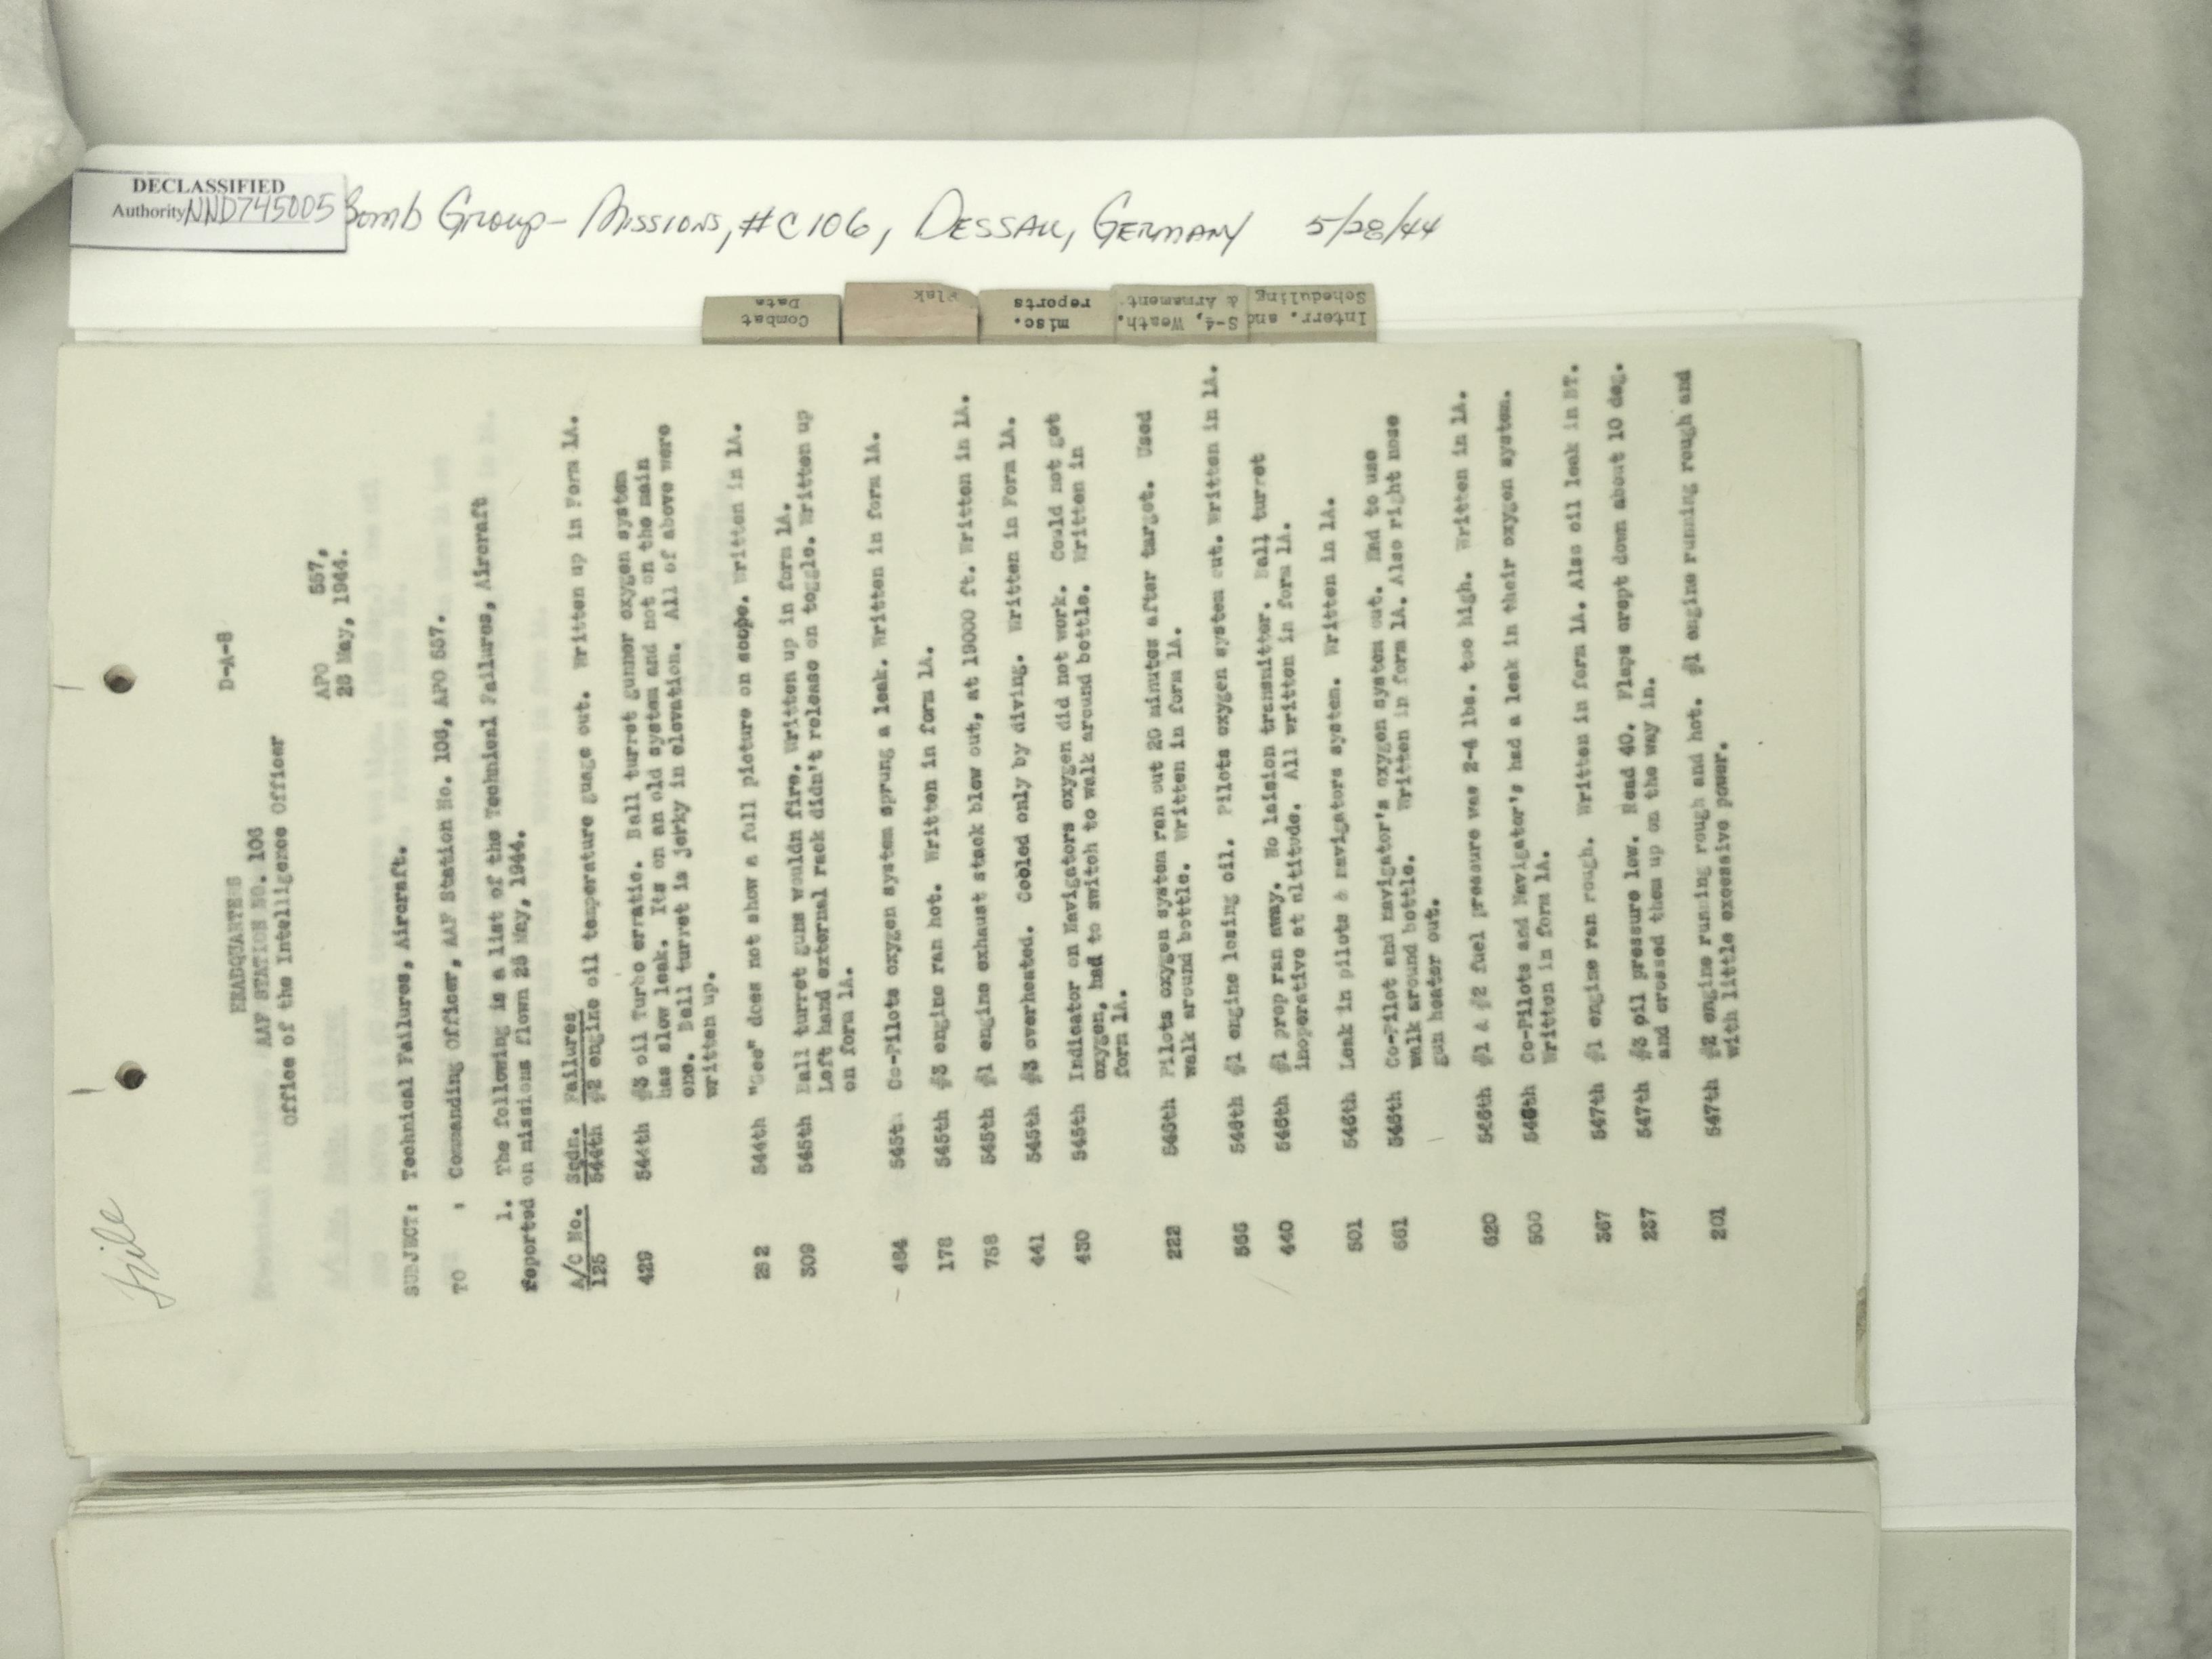 DECLASSIFIED
Authority NND745005
Bomb Group - Missions, #C106, DESSAU, GERMANY 5/28/44
Combat
Data
Flak
misc.
reports
S-4, Weath.
& Armament
Interr. and
Scheduling
File
D-A-8
HEADQUARTES
AAF STATION NO. 106
Office of the Intelligence Officer
APO 557,
28 May, 1944.
SUBJECT: Technical Failures, Aircraft.
TO : Commanding Officer, AAF Station No. 106, APO 557.
1. The following is a list of the Technical Failures, Aircraft
reported on missions flown 28 May, 1944.
A/C No. Sqdn. Failures
125 544th #2 engine oil temperature guage out. Written up in Form 1A.
429 544th #3 oil Turbo erratic. Ball turret gunner oxygen system
has slow leak. Its on an old system and not on the main
one. Ball turret is jerky in elevation. All of above were
written up.
282 544th "Gee" does not show a full picture on scope. Written in 1A.
309 545th Ball turret guns wouldn fire. Written up in form 1A.
Left hand external rack didn't release on toggle. Written up
on form 1A.
484 545th Co-Pilots oxygen system sprung a leak. Written in form 1A.
178 545th #3 engine ran hot. Written in form 1A.
758 545th #1 engine exhaust stack blew out, at 19000 ft. Written in 1A.
441 545th #3 overheated. Cooled only by diving. Written in Form 1A.
430 545th Indicator on Navigators oxygen did not work. Could not get
oxygen, had to switch to walk around bottle. Written in
form 1A.
222 546th Pilots oxygen system ran out 20 minutes after target. Used
walk around bottle. Written in form 1A.
566 546th #1 engine losing oil. Pilots oxygen system out. Written in 1A.
440 546th #1 prop ran away. No laision transmitter. Ball turret
inoperative at altitude. All written in form 1A.
501 546th Leak in pilots & navigators system. Written in 1A.
661 546th Co-Pilot and navigator's oxygen system out. Had to use
walk around bottle. Written in form 1A. Also right nose
gun heater out.
620 546th #1 & #2 fuel pressure was 2-4 lbs. too high. Written in 1A.
500 546th Co-Pilots and Navigator's had a leak in their oxygen system.
Written in form 1A.
367 547th #1 engine ran rough. Written in form 1A. Also oil leak in BT.
237 547th #3 oil pressure low. Read 40. Flaps crept down about 10 deg.
and crossed them up on the way in.
201 547th #2 engine running rough and hot. #1 engine running rough and
with little excessive power.